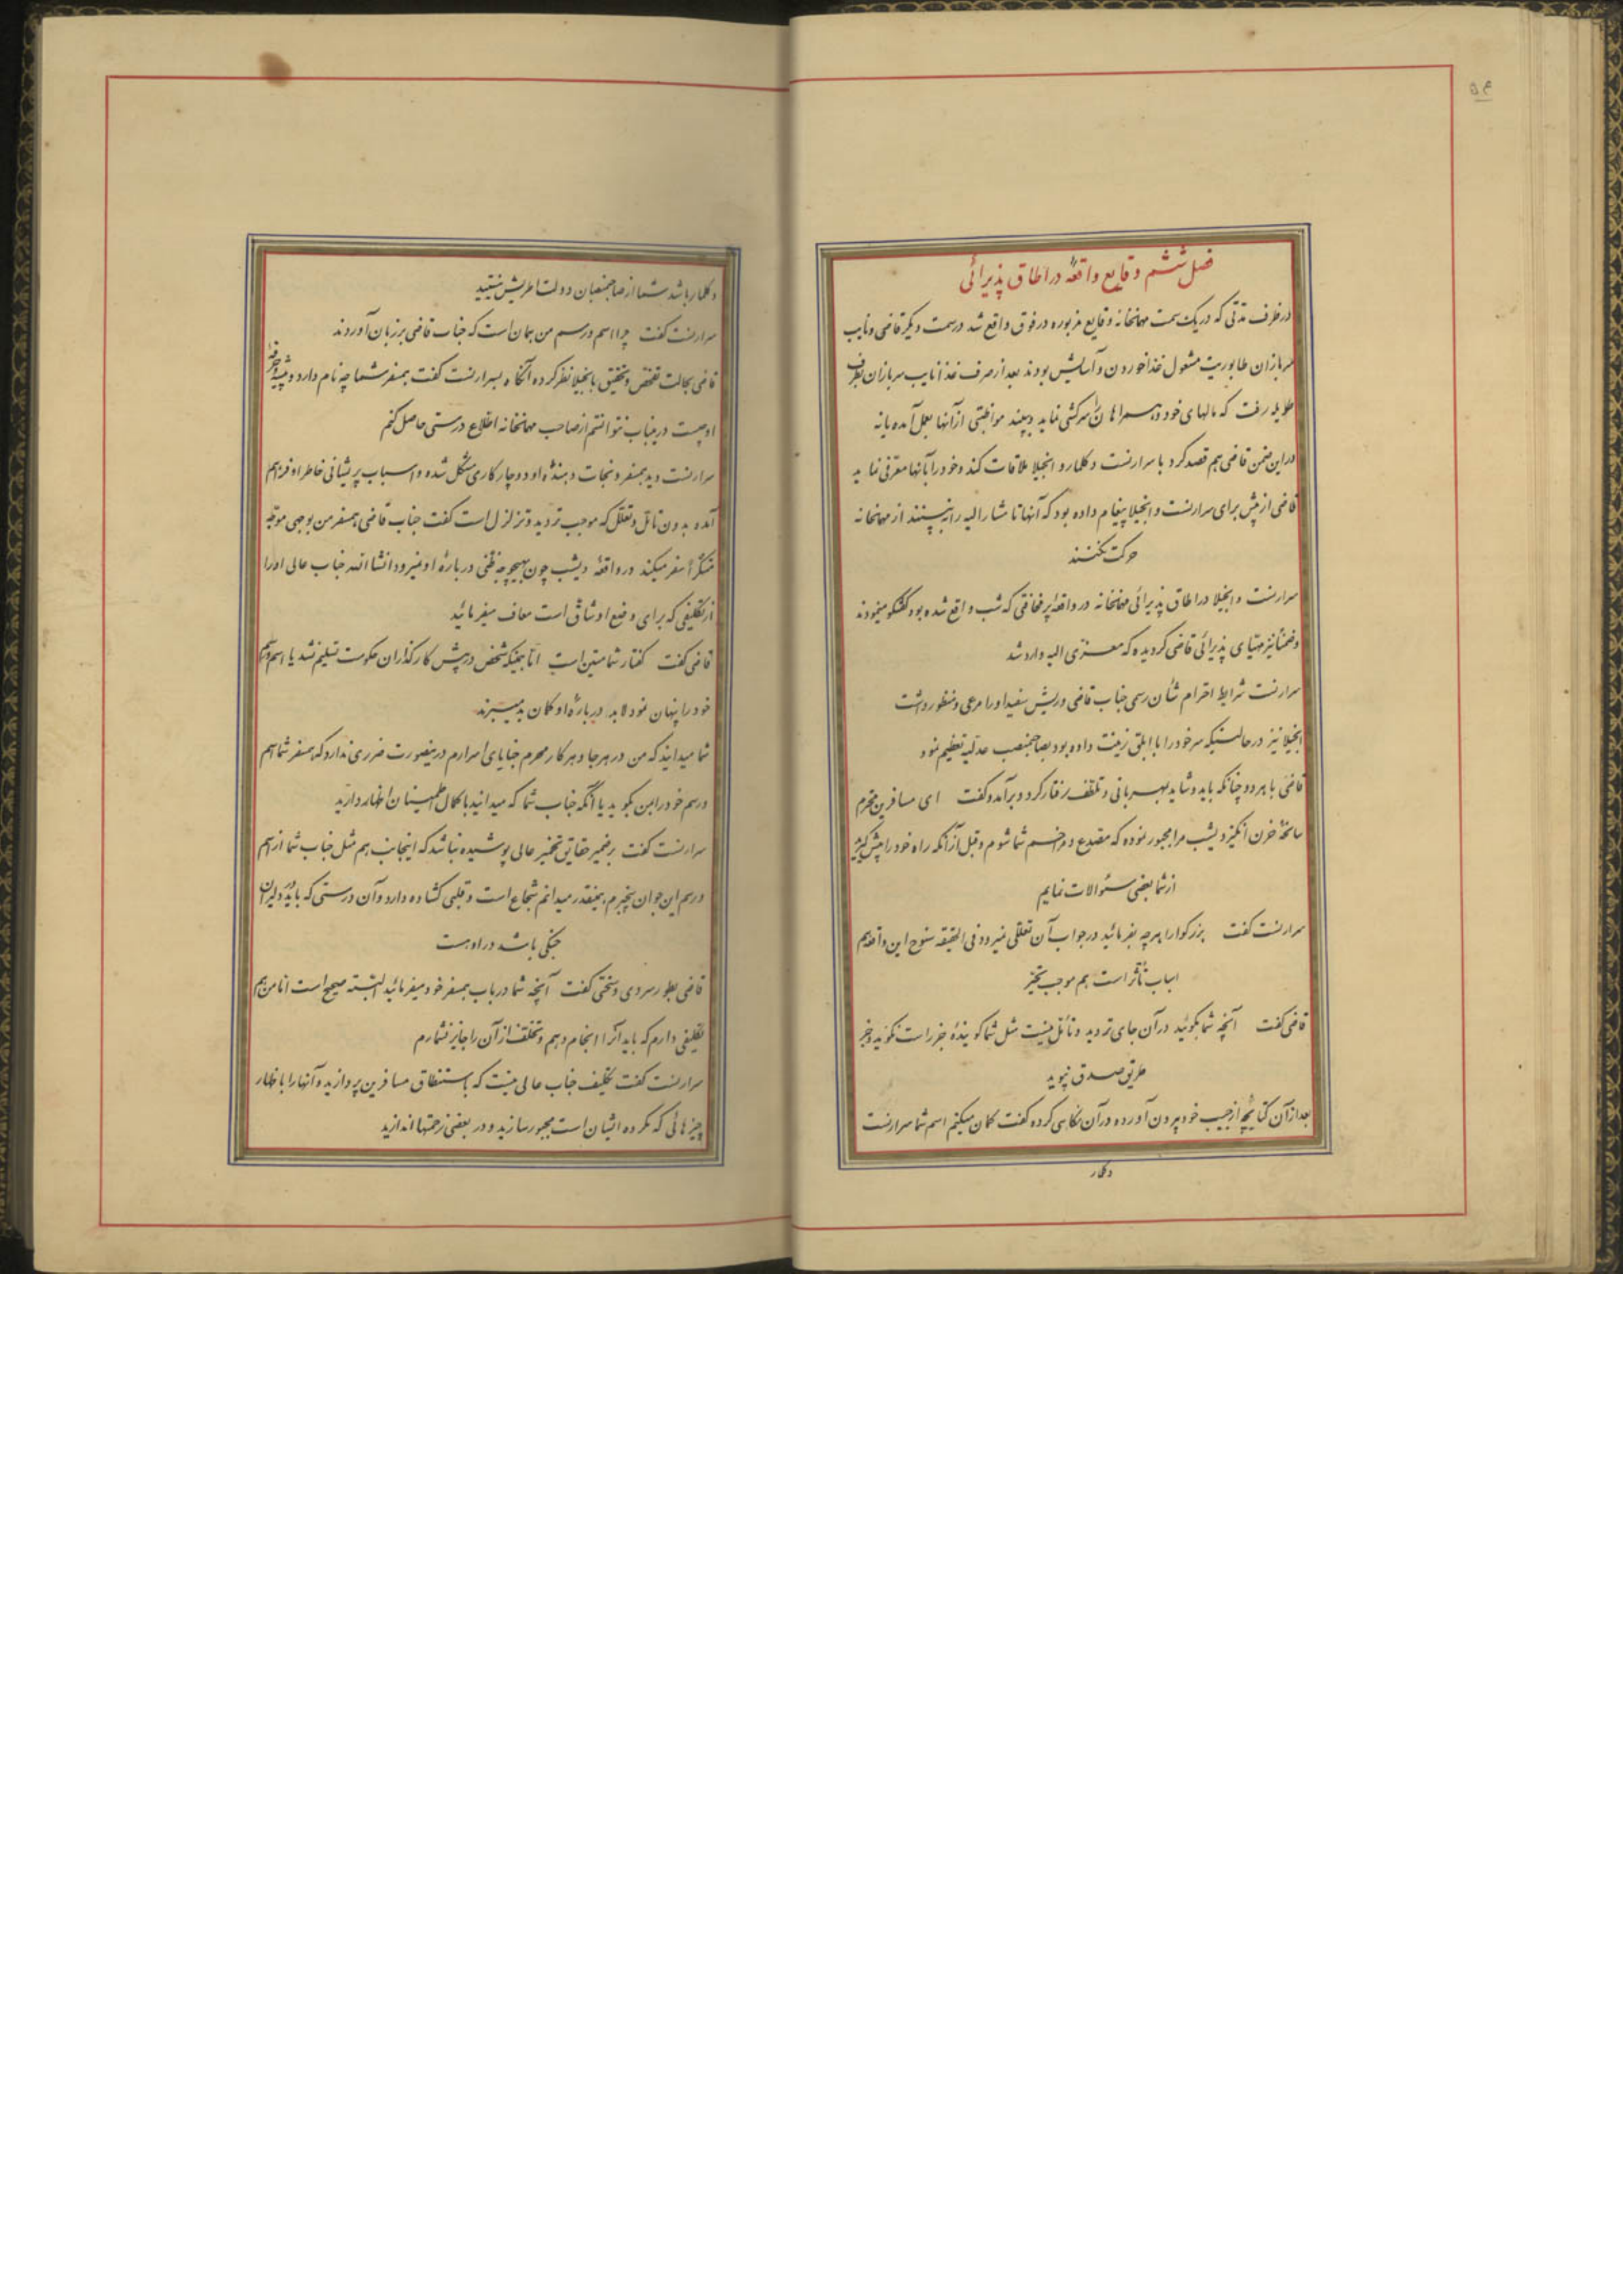 ۵۴
فصل ششم وقایع واقعهٔ در اطاق پذیرائی
در ظرف مدتی که در یک سمت مهمانخانه وقایع مزبوره در فوق واقع شد در سمت دیگر قاضی و نایب
سربازان طابوریت مشغول غذا خوردن و آسایش بودند بعد از صرف غذا نایب سربازان بطرف
طویله رفت که مالهای خود و همراهان را سرکشی نماید و ببیند مواظبتی از آنها بعمل آمده یا نه
در این ضمن قاضی هم قصد کرد با سرارنست دکلمار و انجیلا ملاقات کند و خود را بآنها معرفی نماید
قاضی از پیش برای سرارنست و انجیلا پیغام داده بود که آنها تا مشارالیه را نبینند از مهمانخانه
حرکت نکنند
سرارنست و انجیلا در اطاق پذیرائی مهمانخانه در واقعه پر مخافتی که شب واقع شده بود گفتگو مینمودند
و ضمناً نیز مهیای پذیرائی قاضی گردیده که معزی الیه وارد شد
سرارنست شرایط احترام شأن رسمی جناب قاضی و ریش سفید او را مرعی و منظور داشت
انجیلا نیز در حالتیکه سر خود را با ابلق زینت داده بود بصاحبمنصب عدلیه تعظیم نمود
قاضی با هر دو چنانکه باید و شاید بمهربانی و تلطف رفتار کرد و برآمد و گفت ای مسافرین محترم
سانحهٔ حزن انگیز دیشب مرا مجبور نموده که مصدع و مزاحم شما شوم و قبل از آنکه راه خود را پیش گیرید
از شما بعضی سئوالات نمایم
سرارنست گفت بزرگوارا هرچه بفرمائید در جواب آن تعللی نمیرود فی الحقیقه سنوح این واقعه هم
اسباب تأثر است هم موجب تحیر
قاضی گفت آنچه شما بگوئید در آن جای تردید و تأمل نیست مثل شما گویندهٔ جز راست نگوید و جز
طریق صدق نپوید
بعد از آن کتابچهٔ از جیب خود بیرون آورده در آن نگاهی کرده گفت گمان میکنم اسم شما سرارنست
دکلمار
دکلمار باشد شما از صاحبمنصبان دولت اطریش نیستید
سرارنست گفت چرا اسم و رسم من همان است که جناب قاضی بر زبان آوردند
قاضی بحالت تفحص و تحقیق بانجیلا نظر کرده آنگاه بسرارنست گفت همسفر شما چه نام دارد و پیشه و حرفهٔ
او چیست در اینباب نتوانستم از صاحب مهمانخانه اطلاع درستی حاصل کنم
سرارنست دید همسفر و نجات دهندهٔ او دوچار کاری مشکل شده و اسباب پریشانی خاطر او فراهم
آمده بدون تأمل و تعلل که موجب تردید و تزلزل است گفت جناب قاضی همسفر من بوجهی موجه
متنکراً سفر میکند در واقعهٔ دیشب چون بهیچوجه ظنی دربارهٔ او نمیرود انشاءالله جناب عالی او را
از تکلیفی که برای وضع او شاق است معاف میفرمائید
قاضی گفت گفتار شما متین است اما همینکه شخص در پیش کارگذاران حکومت تسلیم نشد یا اسم و رسم
خود را پنهان نمود لابد دربارهٔ او گمان بد میبرند
شما میدانید که من در هر جا و هر کار محرم خبایای اسرارم در اینصورت ضرری ندارد که همسفر شما اسم
و رسم خود را بمن بگوید یا آنکه جناب شما که میدانید با کمال اطمینان اظهار دارید
سرارنست گفت بر ضمیر حقایق تخمیر عالی پوشیده نباشد که اینجانب هم مثل جناب شما از اسم
و رسم این جوان بیخبرم همینقدر میدانم شجاع است و قلبی گشاده دارد و آن درستی که باید در دلیران
جنگی باشد در او هست
قاضی بطور سردی و سختی گفت آنچه شما در باب همسفر خود میفرمائید البته صحیح است اما من هم
تکلیفی دارم که باید آنرا انجام دهم و تخلف از آن را جایز نشمارم
سرارنست گفت تکلیف جناب عالی نیست که باستنطاق مسافرین پردازید و آنها را باظهار
چیزهائی که مکروه ایشان است مجبور سازید و در بعضی زحمتها اندازید